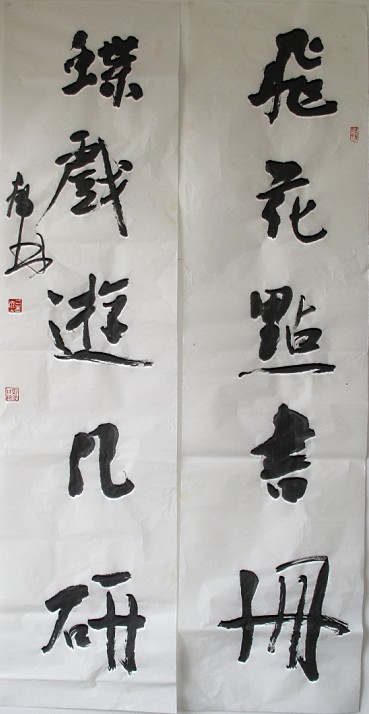 飛花點書冊
蝶戲遊几研